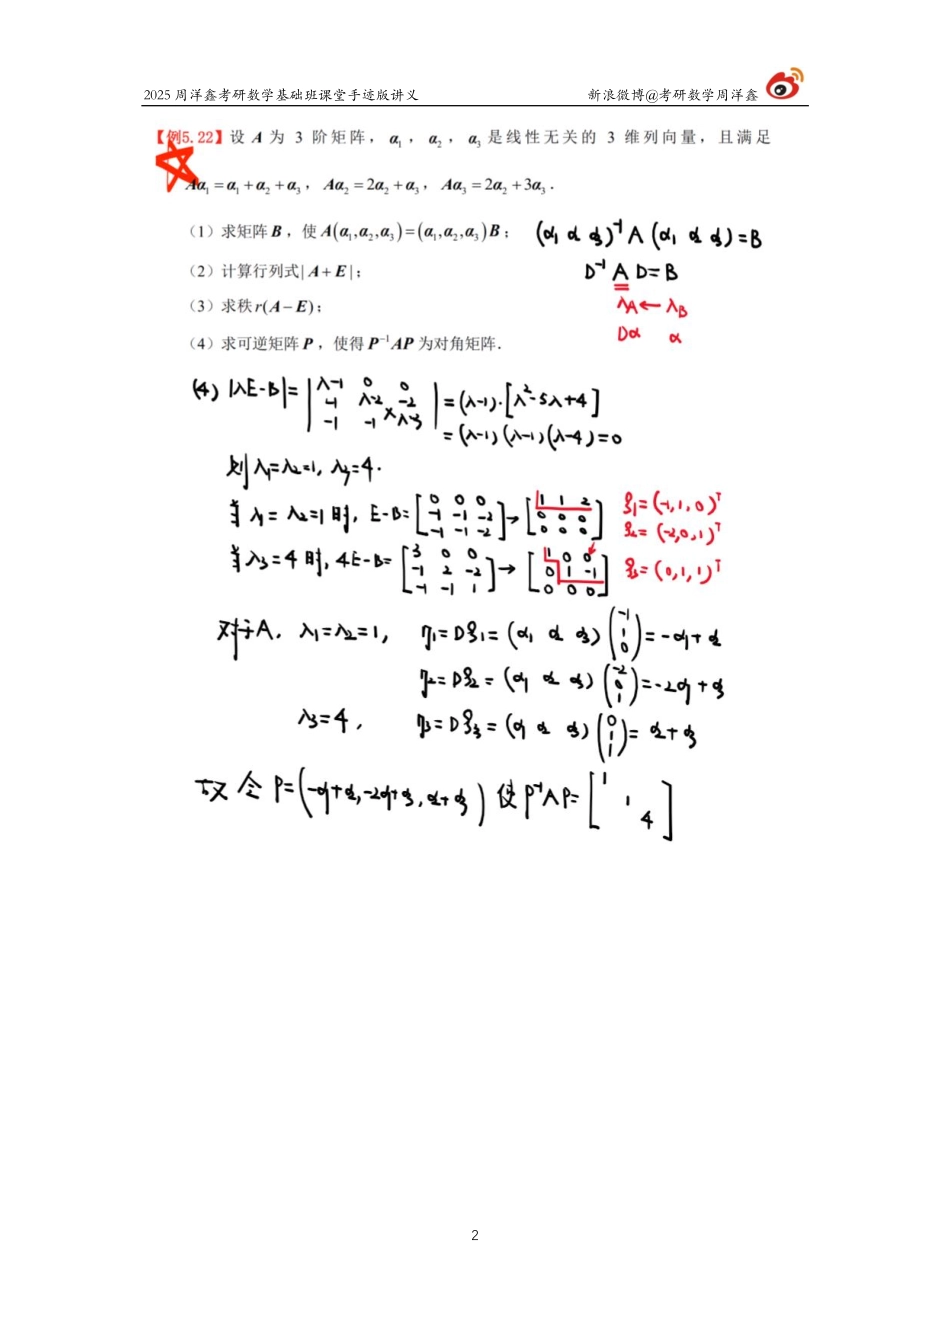 2025 周洋鑫考研数学基础班课堂手迹版讲义 新浪微博@考研数学周洋鑫
【例5.22】设 A 为 3 阶矩阵，α₁，α₂，α₃ 是线性无关的 3 维列向量，且满足
Aα₁ = α₁ + α₂ + α₃，Aα₂ = 2α₂ + α₃，Aα₃ = 2α₂ + 3α₃．
（1）求矩阵 B，使 A(α₁,α₂,α₃) = (α₁,α₂,α₃)B； (α₁ α₂ α₃)⁻¹ A (α₁ α₂ α₃) = B
（2）计算行列式| A + E |； D⁻¹ A D = B
（3）求秩 r(A − E)； λA ← λB
Dα α
（4）求可逆矩阵 P，使得 P⁻¹AP 为对角矩阵．
(4) |λE-B| = | λ-1 0 0 ; -1 λ-2 -2 ; -1 -1 λ-3 | = (λ-1)·[λ²-5λ+4]
= (λ-1)(λ-1)(λ-4) = 0
则 λ₁=λ₂=1, λ₃=4.
当 λ₁=λ₂=1 时, E-B = [ 0 0 0 ; -1 -1 -2 ; -1 -1 -2 ] → [ 1 1 2 ; 0 0 0 ; 0 0 0 ] ξ₁=(-1,1,0)ᵀ
ξ₂=(-2,0,1)ᵀ
当 λ₃=4 时, 4E-B = [ 3 0 0 ; -1 2 -2 ; -1 -1 1 ] → [ 1 0 0 ; 0 1 -1 ; 0 0 0 ] ξ₃=(0,1,1)ᵀ
对于A, λ₁=λ₂=1, η₁=Dξ₁=(α₁ α₂ α₃)(-1 ; 1 ; 0) = -α₁+α₂
η₂=Dξ₂=(α₁ α₂ α₃)(-2 ; 0 ; 1) = -2α₁+α₃
λ₃=4, η₃=Dξ₃=(α₁ α₂ α₃)(0 ; 1 ; 1) = α₂+α₃
故令 P=(-α₁+α₂, -2α₁+α₃, α₂+α₃) 使 P⁻¹AP=[ 1 ; 1 ; 4 ]
2